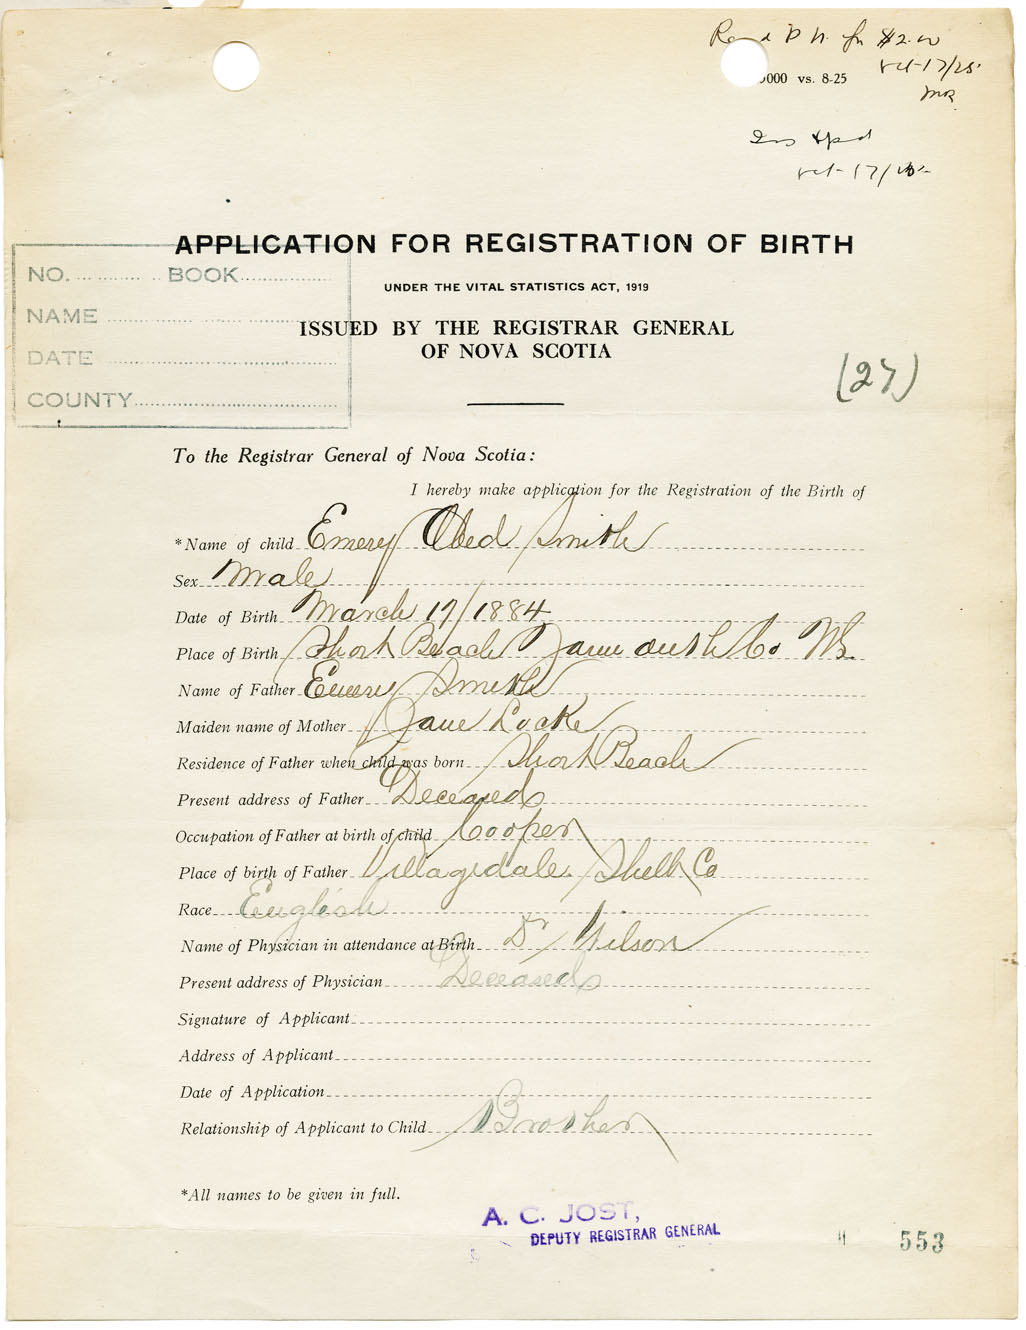 Rec'd P. N. for $2.00
Oct 17/25
MR
000 vs. 8-25
Ins
Oct 17/25
APPLICATION FOR REGISTRATION OF BIRTH
UNDER THE VITAL STATISTICS ACT, 1919
ISSUED BY THE REGISTRAR GENERAL
OF NOVA SCOTIA
NO. BOOK
NAME
DATE
COUNTY
(27)
To the Registrar General of Nova Scotia:
I hereby make application for the Registration of the Birth of
*Name of child Emery Obed Smith
Sex Male
Date of Birth March 17/1884
Place of Birth Short Beach Yarmouth Co NS.
Name of Father Emery Smith
Maiden name of Mother Jane Locke
Residence of Father when child was born Short Beach
Present address of Father Deceased
Occupation of Father at birth of child Cooper
Place of birth of Father Villagedale Shelb Co
Race English
Name of Physician in attendance at Birth Dr Wilson
Present address of Physician Deceased
Signature of Applicant
Address of Applicant
Date of Application
Relationship of Applicant to Child Brother
*All names to be given in full.
A. C. JOST,
DEPUTY REGISTRAR GENERAL
553